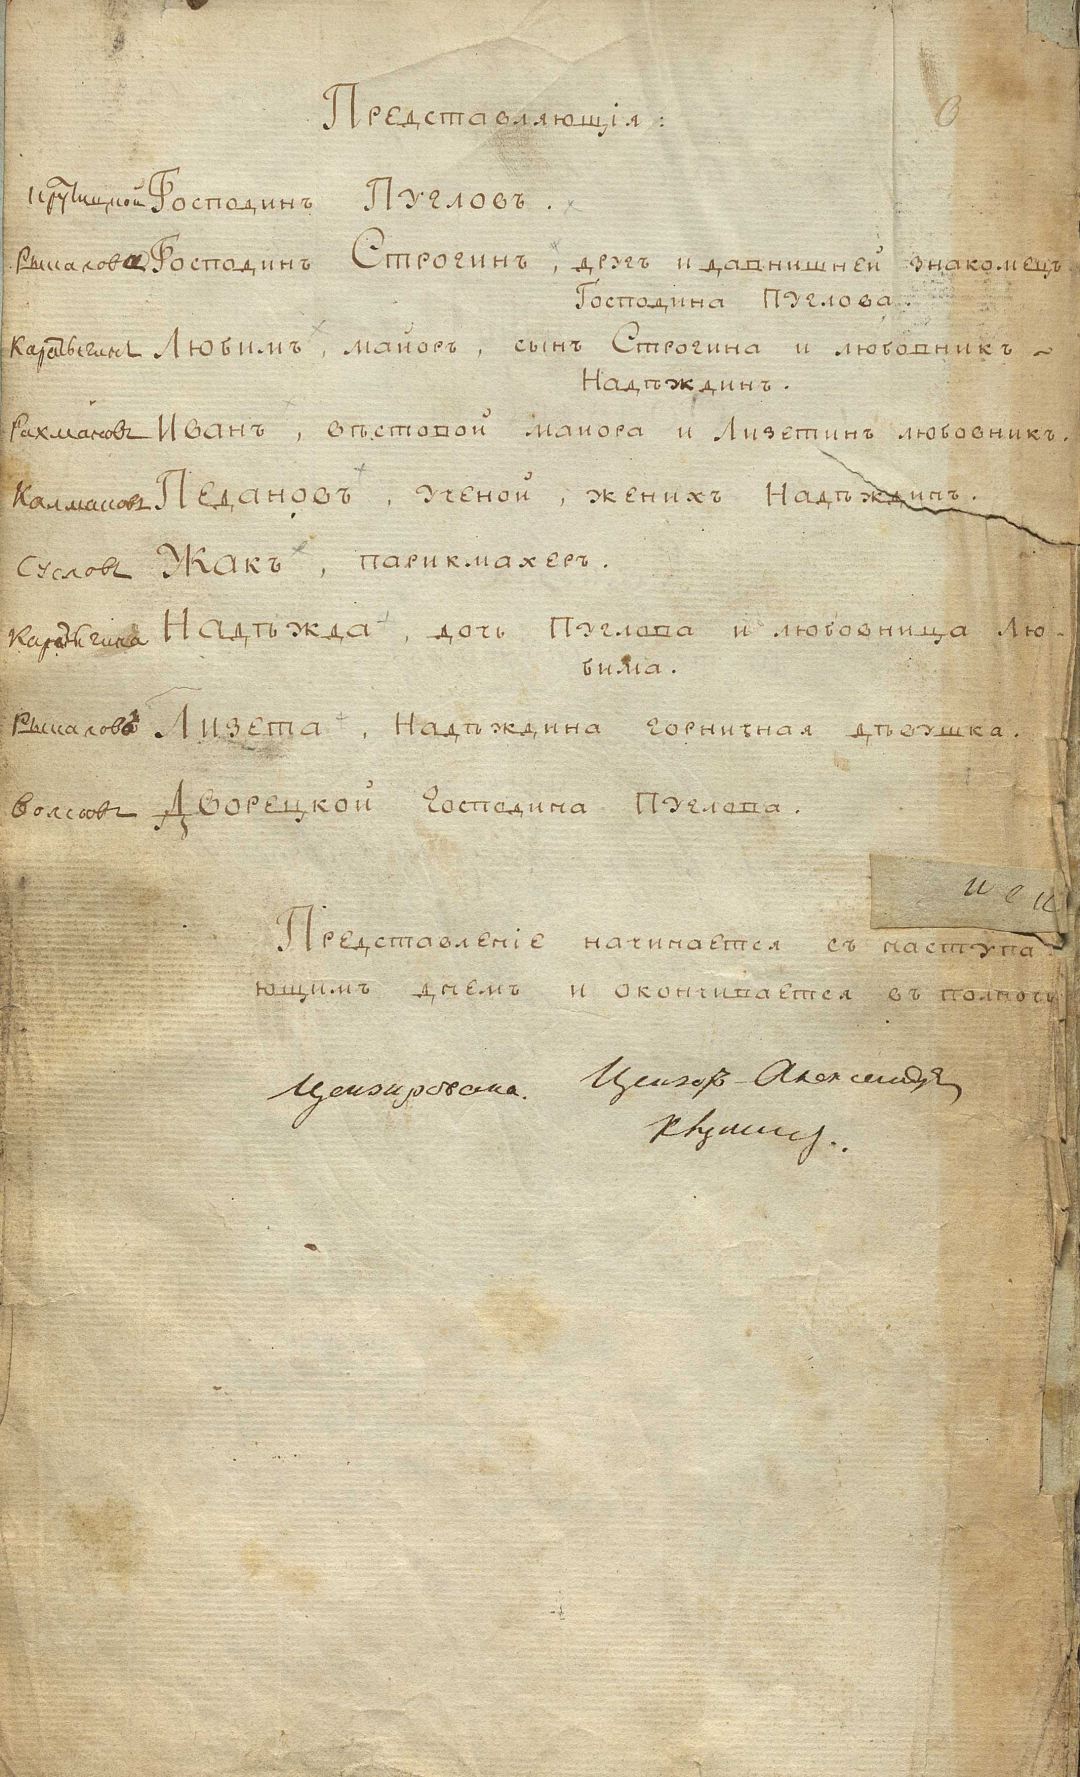 Представляющія:
Крутицкой Господинъ Пугловъ.
Рыкалова Господинъ Строгинъ, другъ и давнишней знакомецъ
Господина Пуглова.
Любимъ, майоръ, сынъ Строгина и любовникъ ~
Надѣждинъ.
Рахмановъ Иванъ, вѣстовой майора и Лизетинъ любовникъ.
Калмаковъ Педановъ, ученой, женихъ Надѣждинъ.
Сусловъ Жакъ, парикмахеръ.
Надѣжда, дочь Пуглова и любовница Лю-
бима.
Лизета, Надѣждина горничная дѣвушка.
Волковъ Дворецкой Господина Пуглова.
Представленіе начинается съ наступа-
ющимъ днемъ и окончивается въ полночь
Цензирована. Цензоръ Александръ